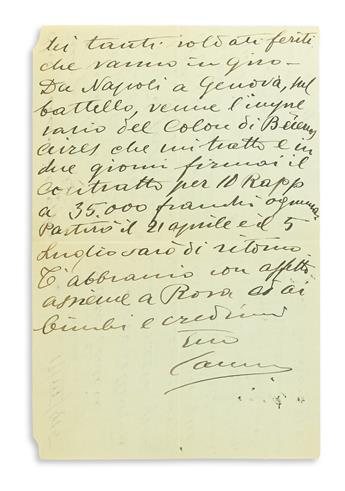 dei tanti soldati feriti
che vanno in giro —
Da Napoli a Genova, sul
battello, venne l'impre
sario del Colon di Buenos
Aires che mi trattò e in
due giorni firmai il
contratto per 10 Rapp
a 35.000 franchi ognuna.
Partirò il 21 aprile ed il 5
Luglio sarò di ritorno
T'abbraccio con affetto
assieme a Rosa ed ai
bimbi e credimi
Tuo